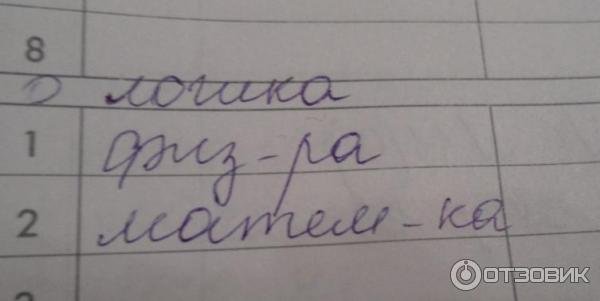 8
0 логика
1 физ-ра
2 матем-ка
ОТЗОВИК